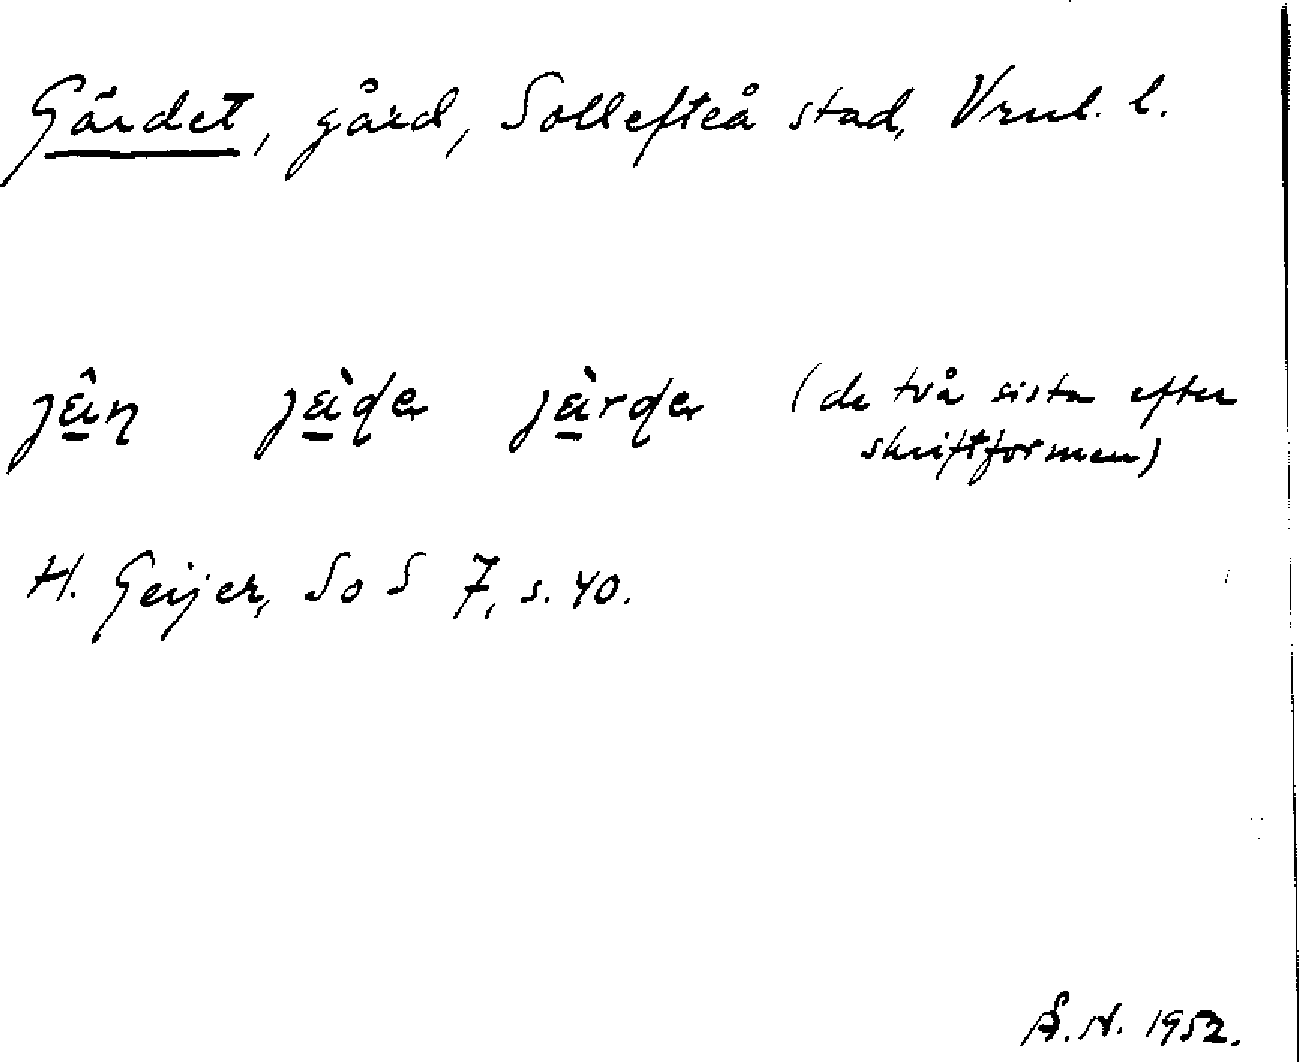 Gärdet, gård, Sollefteå stad, Vrnl. l.
jɛ̂n jɛ̀de jɛ̀rde (de två sista efter
skriftformen)
H. Geijer, SoS 7, s. 40.
Å. N. 1952.